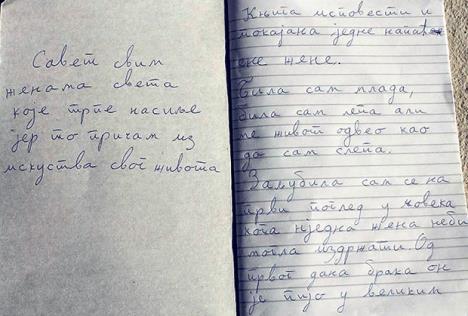 Савет свим
женама света
које трпе насиље
јер то причам из
искуства свог живота
Књига исповести и
покајања једне напаћ
ене жене.
Била сам млада,
била сам лепа али
ме живот одвео као
да сам слепа.
Заљубила сам се на
први поглед у човека
кога ниједна жена неби
могла издржати. Од
првог дана брака он
је пијо у великим